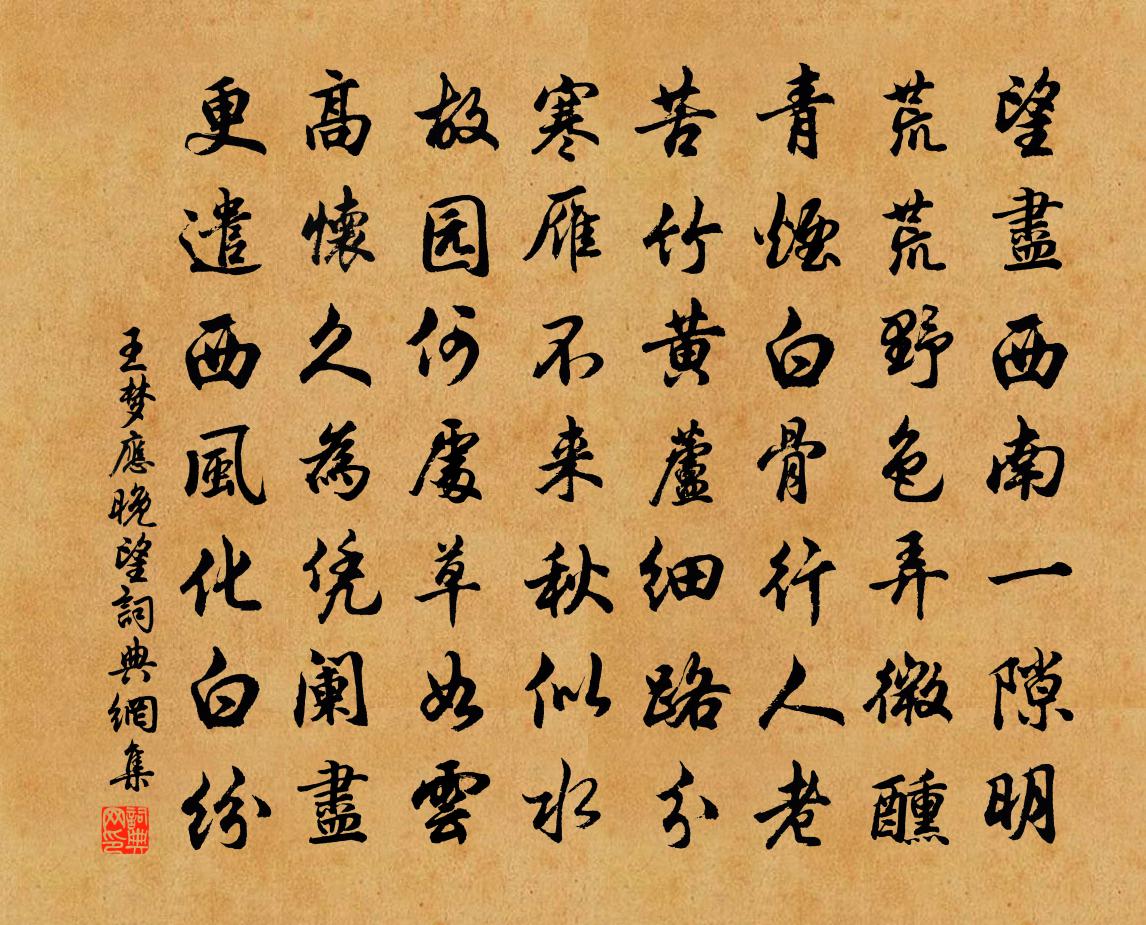 望盡西南一隙明
荒荒野色弄微醺
青煙白骨行人老
苦竹黄蘆細路分
寒雁不来秋似水
故园何處草如雲
高懷久為凭阑盡
更遣西風化白紛
王梦應晚望詞典網集
詞典网印